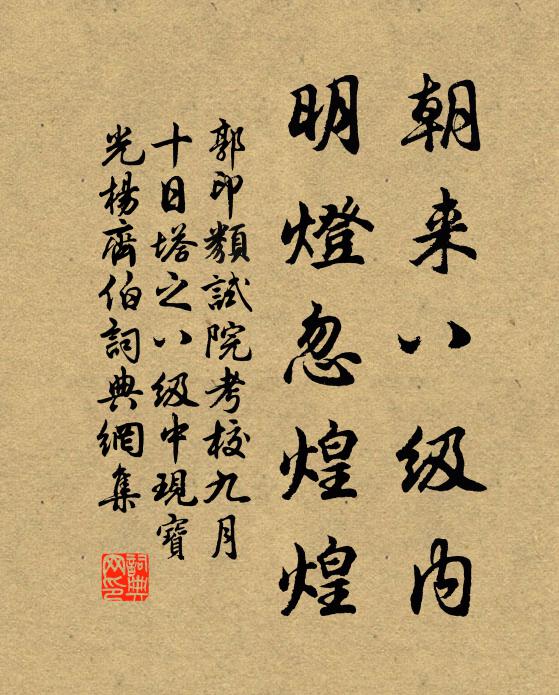 朝来八级内
明燈忽煌煌
郭印類試院考校九月
十日塔之八级中現寶
光楊齊伯詞典網集
詞典网印